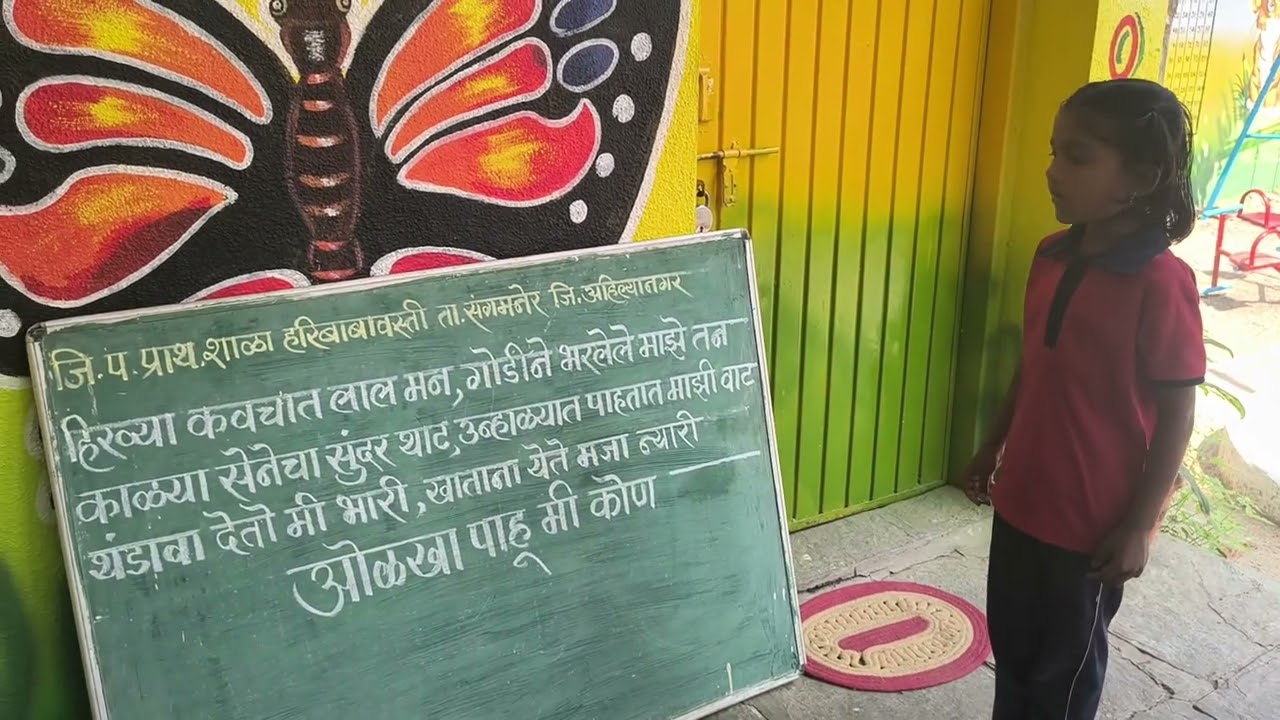 जि. प. प्राथ. शाळा हरिबाबावस्ती ता. संगमनेर जि. अहिल्यानगर
हिरव्या कवचात लाल मन, गोडीने भरलेले माझे तन
काळ्या सेनेचा सुंदर थाट, उन्हाळ्यात पाहतात माझी वाट
थंडावा देतो मी भारी, खाताना येते मजा न्यारी
ओळखा पाहू मी कोण